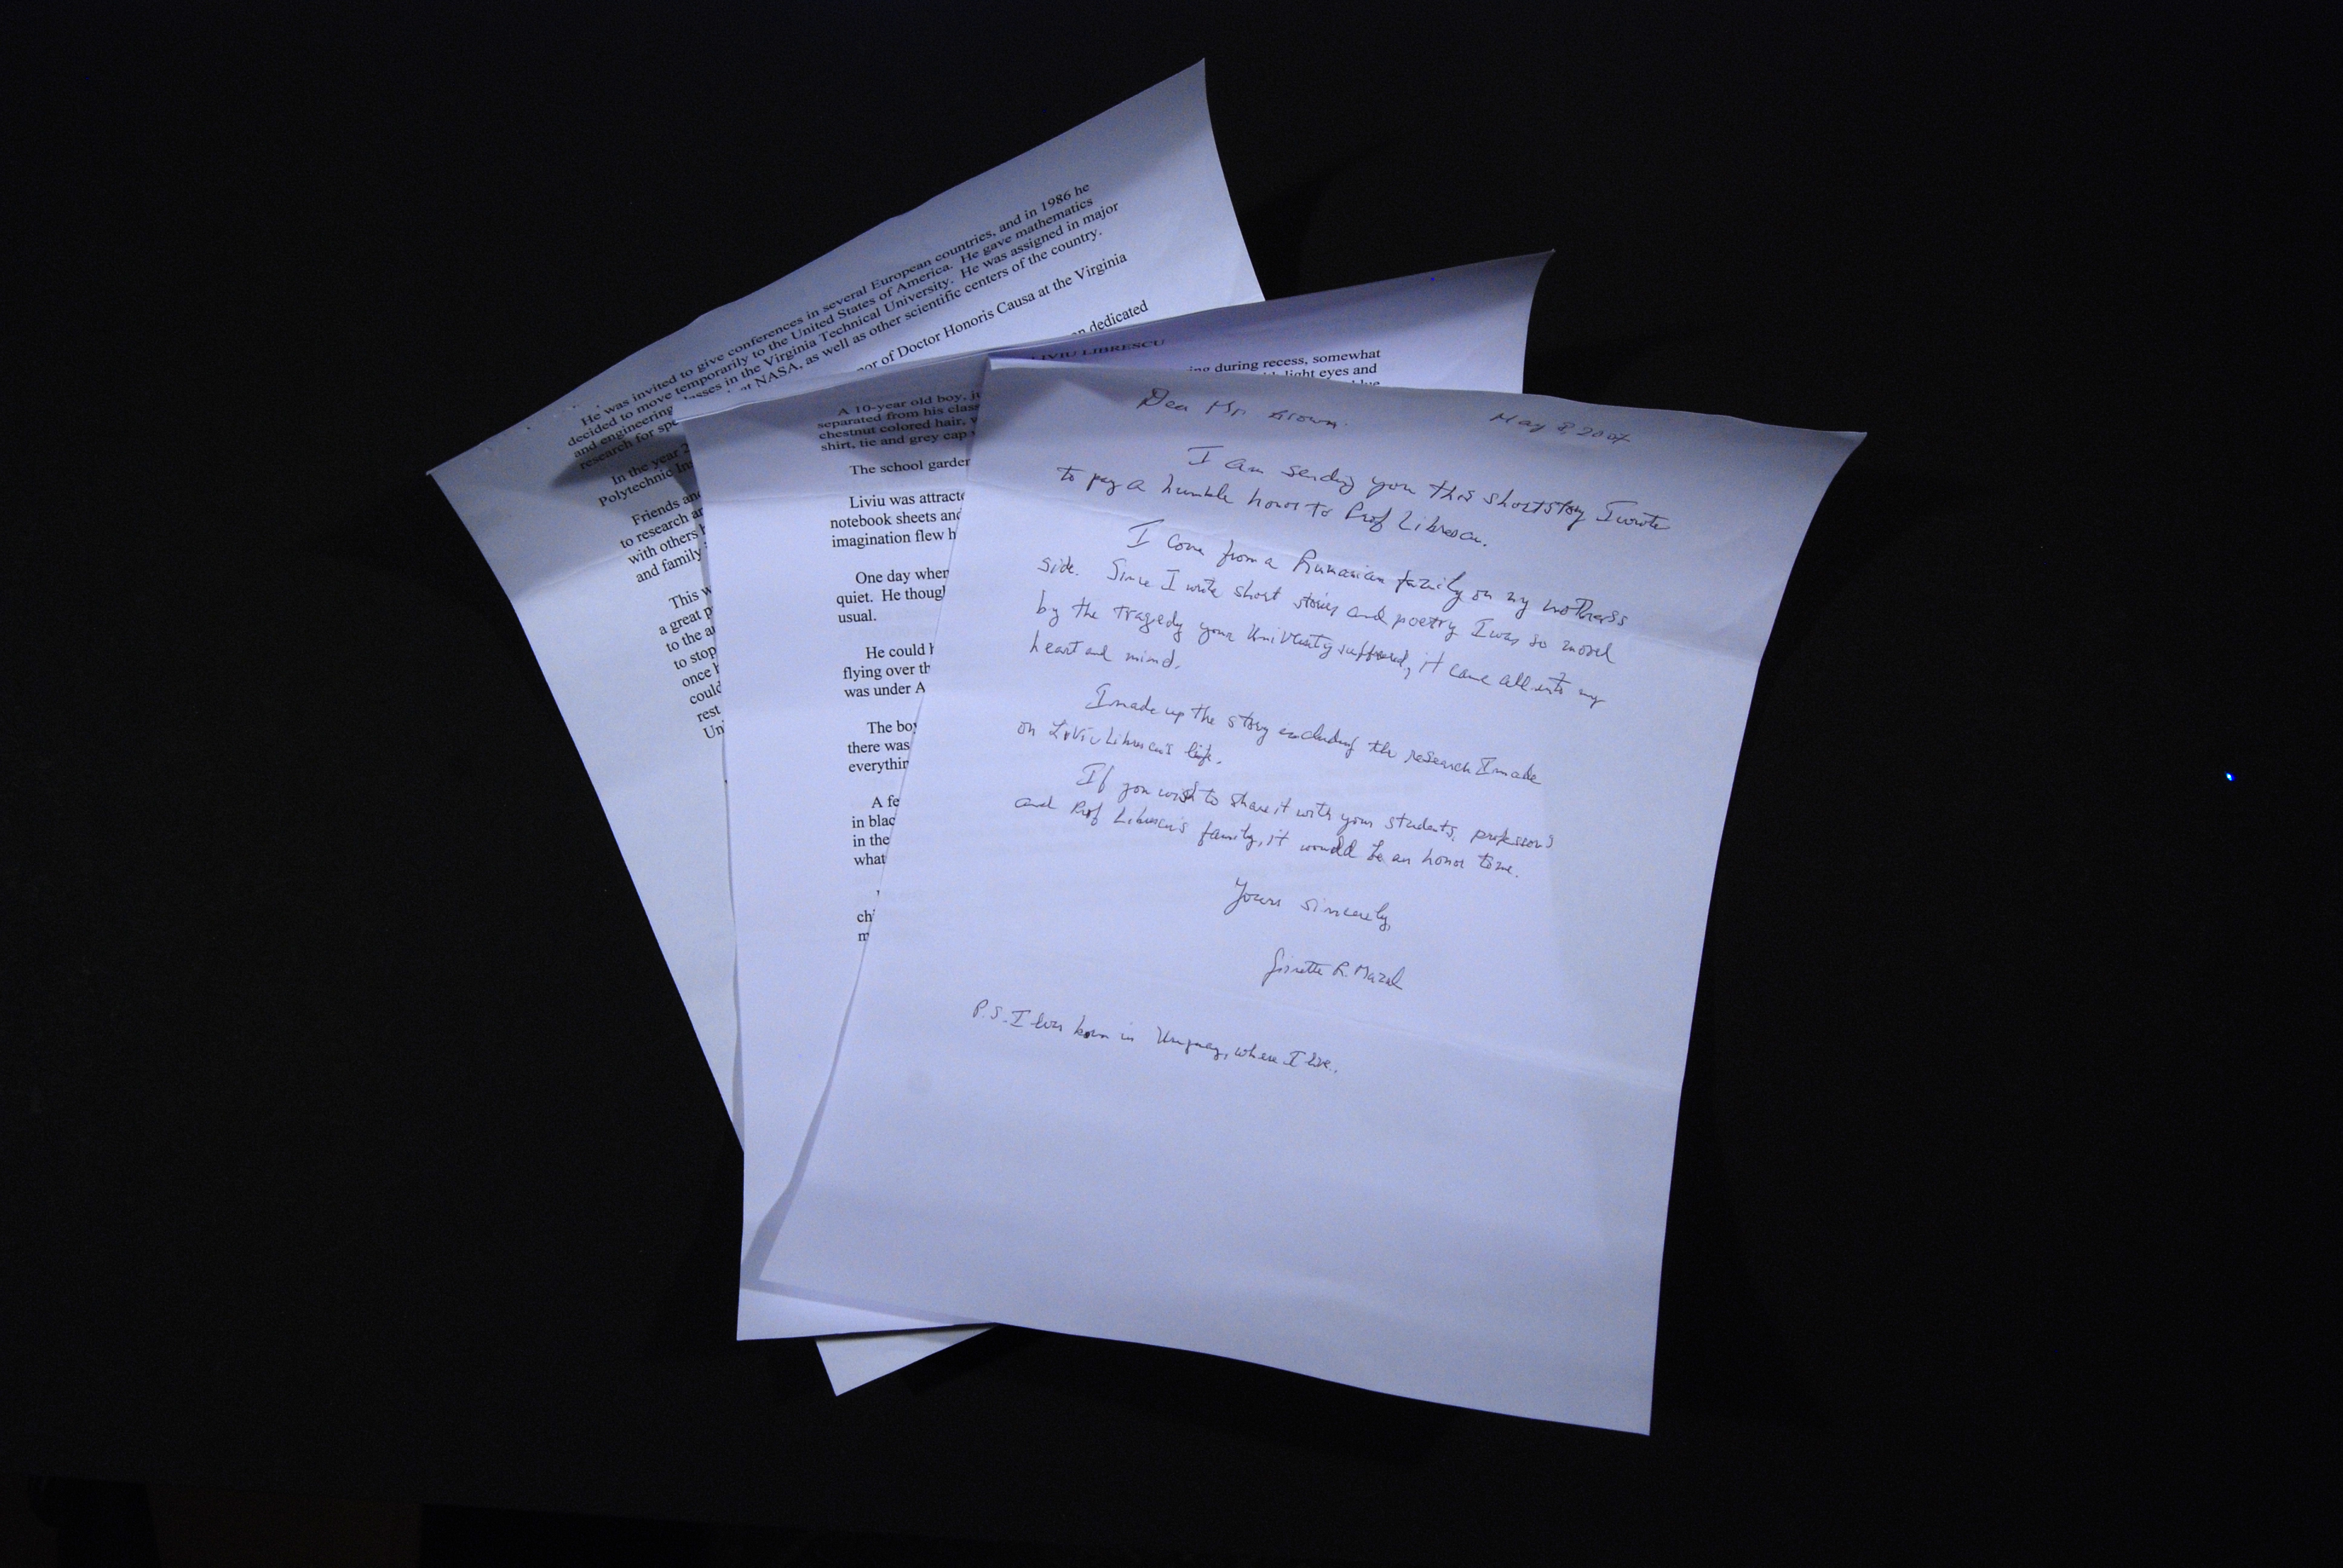 He was invited to give conferences in several European countries, and in 1986 he
decided to move temporarily to the United States of America. He gave mathematics
and engineering classes in the Virginia Technical University. He was assigned in major
research for spe at NASA, as well as other scientific centers of the country.
In the year 2 nor of Doctor Honoris Causa at the Virginia
Polytechnic Ins
Friends and n dedicated
to research an
with others h
and family
This w
a great p
to the a
to stop
once h
could
rest
Un
LIVIU LIBRESCU
A 10-year old boy, ju ing during recess, somewhat
separated from his class light eyes and
chestnut colored hair, w
shirt, tie and grey cap
The school garden
Liviu was attracte
notebook sheets and
imagination flew h
One day when
quiet. He though
usual.
He could h
flying over th
was under A
The boy
there was
everythin
A fe
in blac
in the
what
ch
m
Dear Mr. Brown.
May 8, 2007
I am sending you this short story I wrote
to pay a humble honor to Prof Librescu.
I come from a Rumanian family on my mother's
side. Since I write short stories and poetry I was so moved
by the tragedy your University suffered, it came all into my
heart and mind.
I made up the story including the research I made
on Liviu Librescu's life.
If you wish to share it with your students, professors
and Prof Librescu's family, it would be an honor to me.
Yours sincerely,
Ginette R. Mazal
P.S. I was born in Uruguay, where I live.